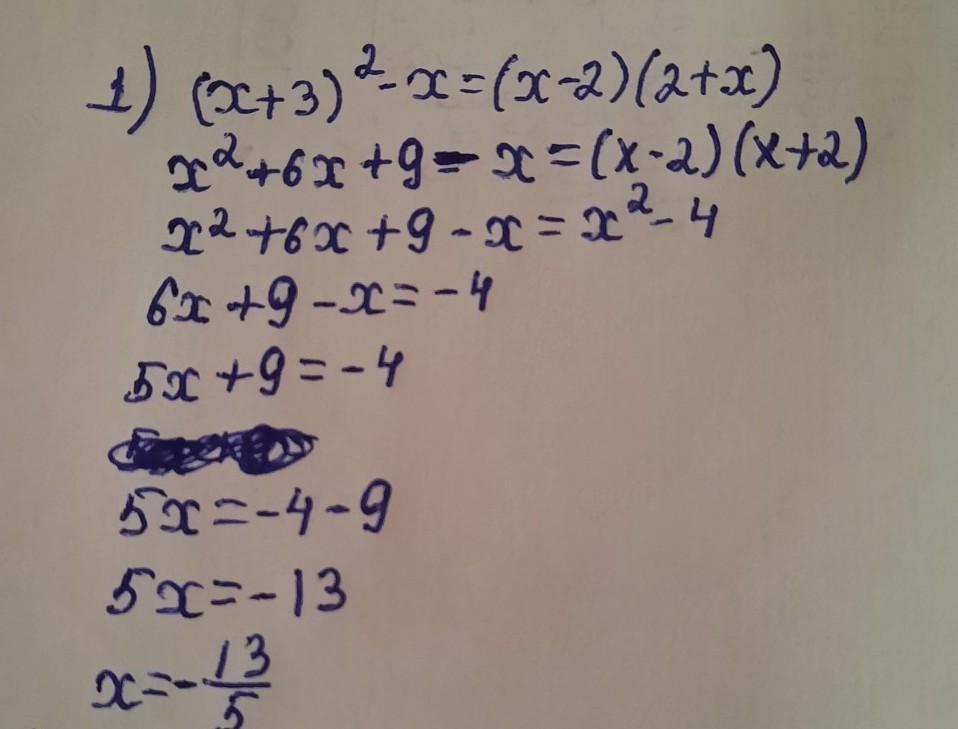 1) (x+3)² - x = (x-2)(2+x)
x² + 6x + 9 - x = (x-2)(x+2)
x² + 6x + 9 - x = x² - 4
6x + 9 - x = -4
5x + 9 = -4
5x = -4 - 9
5x = -13
x = -13/5